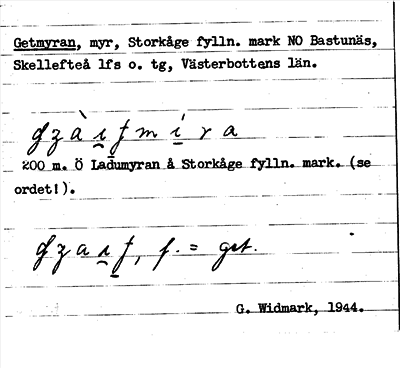 Getmyran, myr, Storkåge fylln. mark NO Bastunäs,
Skellefteå lfs o. tg, Västerbottens län.
200 m. Ö Ladumyran å Storkåge fylln. mark. (se
ordet!).
f. = get.
G. Widmark, 1944.